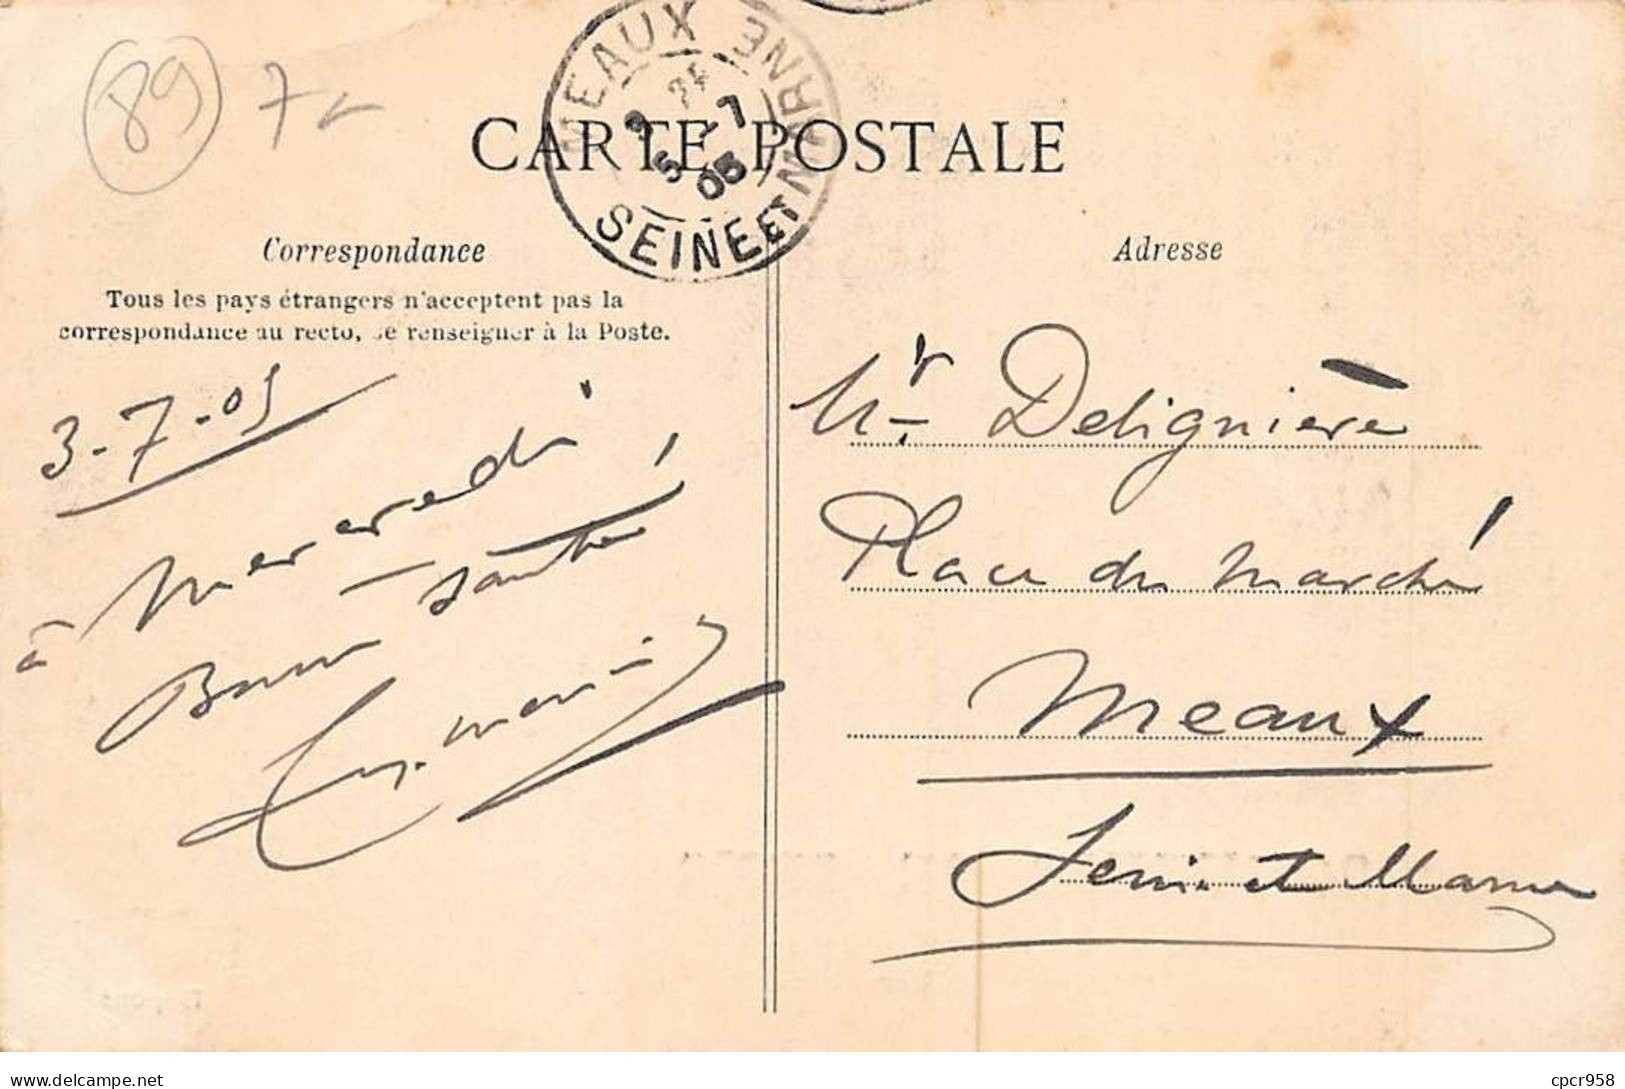 89
7
MEAUX
SEINE ET MARNE
5 -7
05
CARTE POSTALE
Correspondance
Tous les pays étrangers n'acceptent pas la
correspondance au recto, se renseigner à la Poste.
3-7-05
à Mercredi
Bonne santé
Adresse
Mr. Delignière
Place du Marché
Meaux
Seine et Marne
delcampe.net
cpcr958